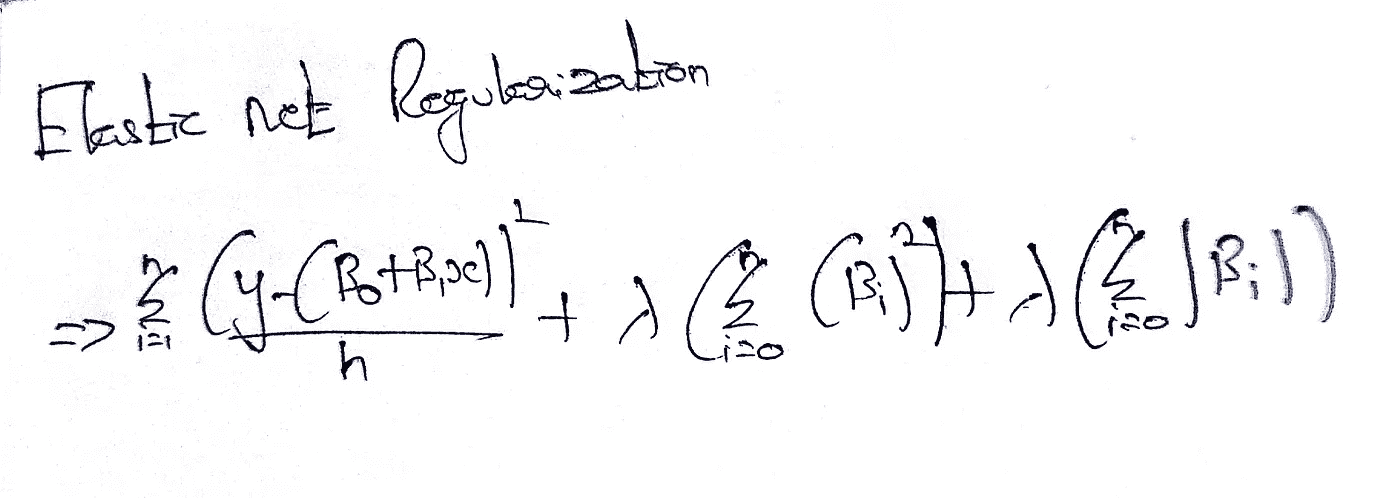 Elastic net Regularization
=> Σ_{i=1}^{n} (y-(β₀+β₁x))² / n + λ(Σ_{i=0}^{n} (βᵢ)²) + λ(Σ_{i=0}^{n} |βᵢ|)